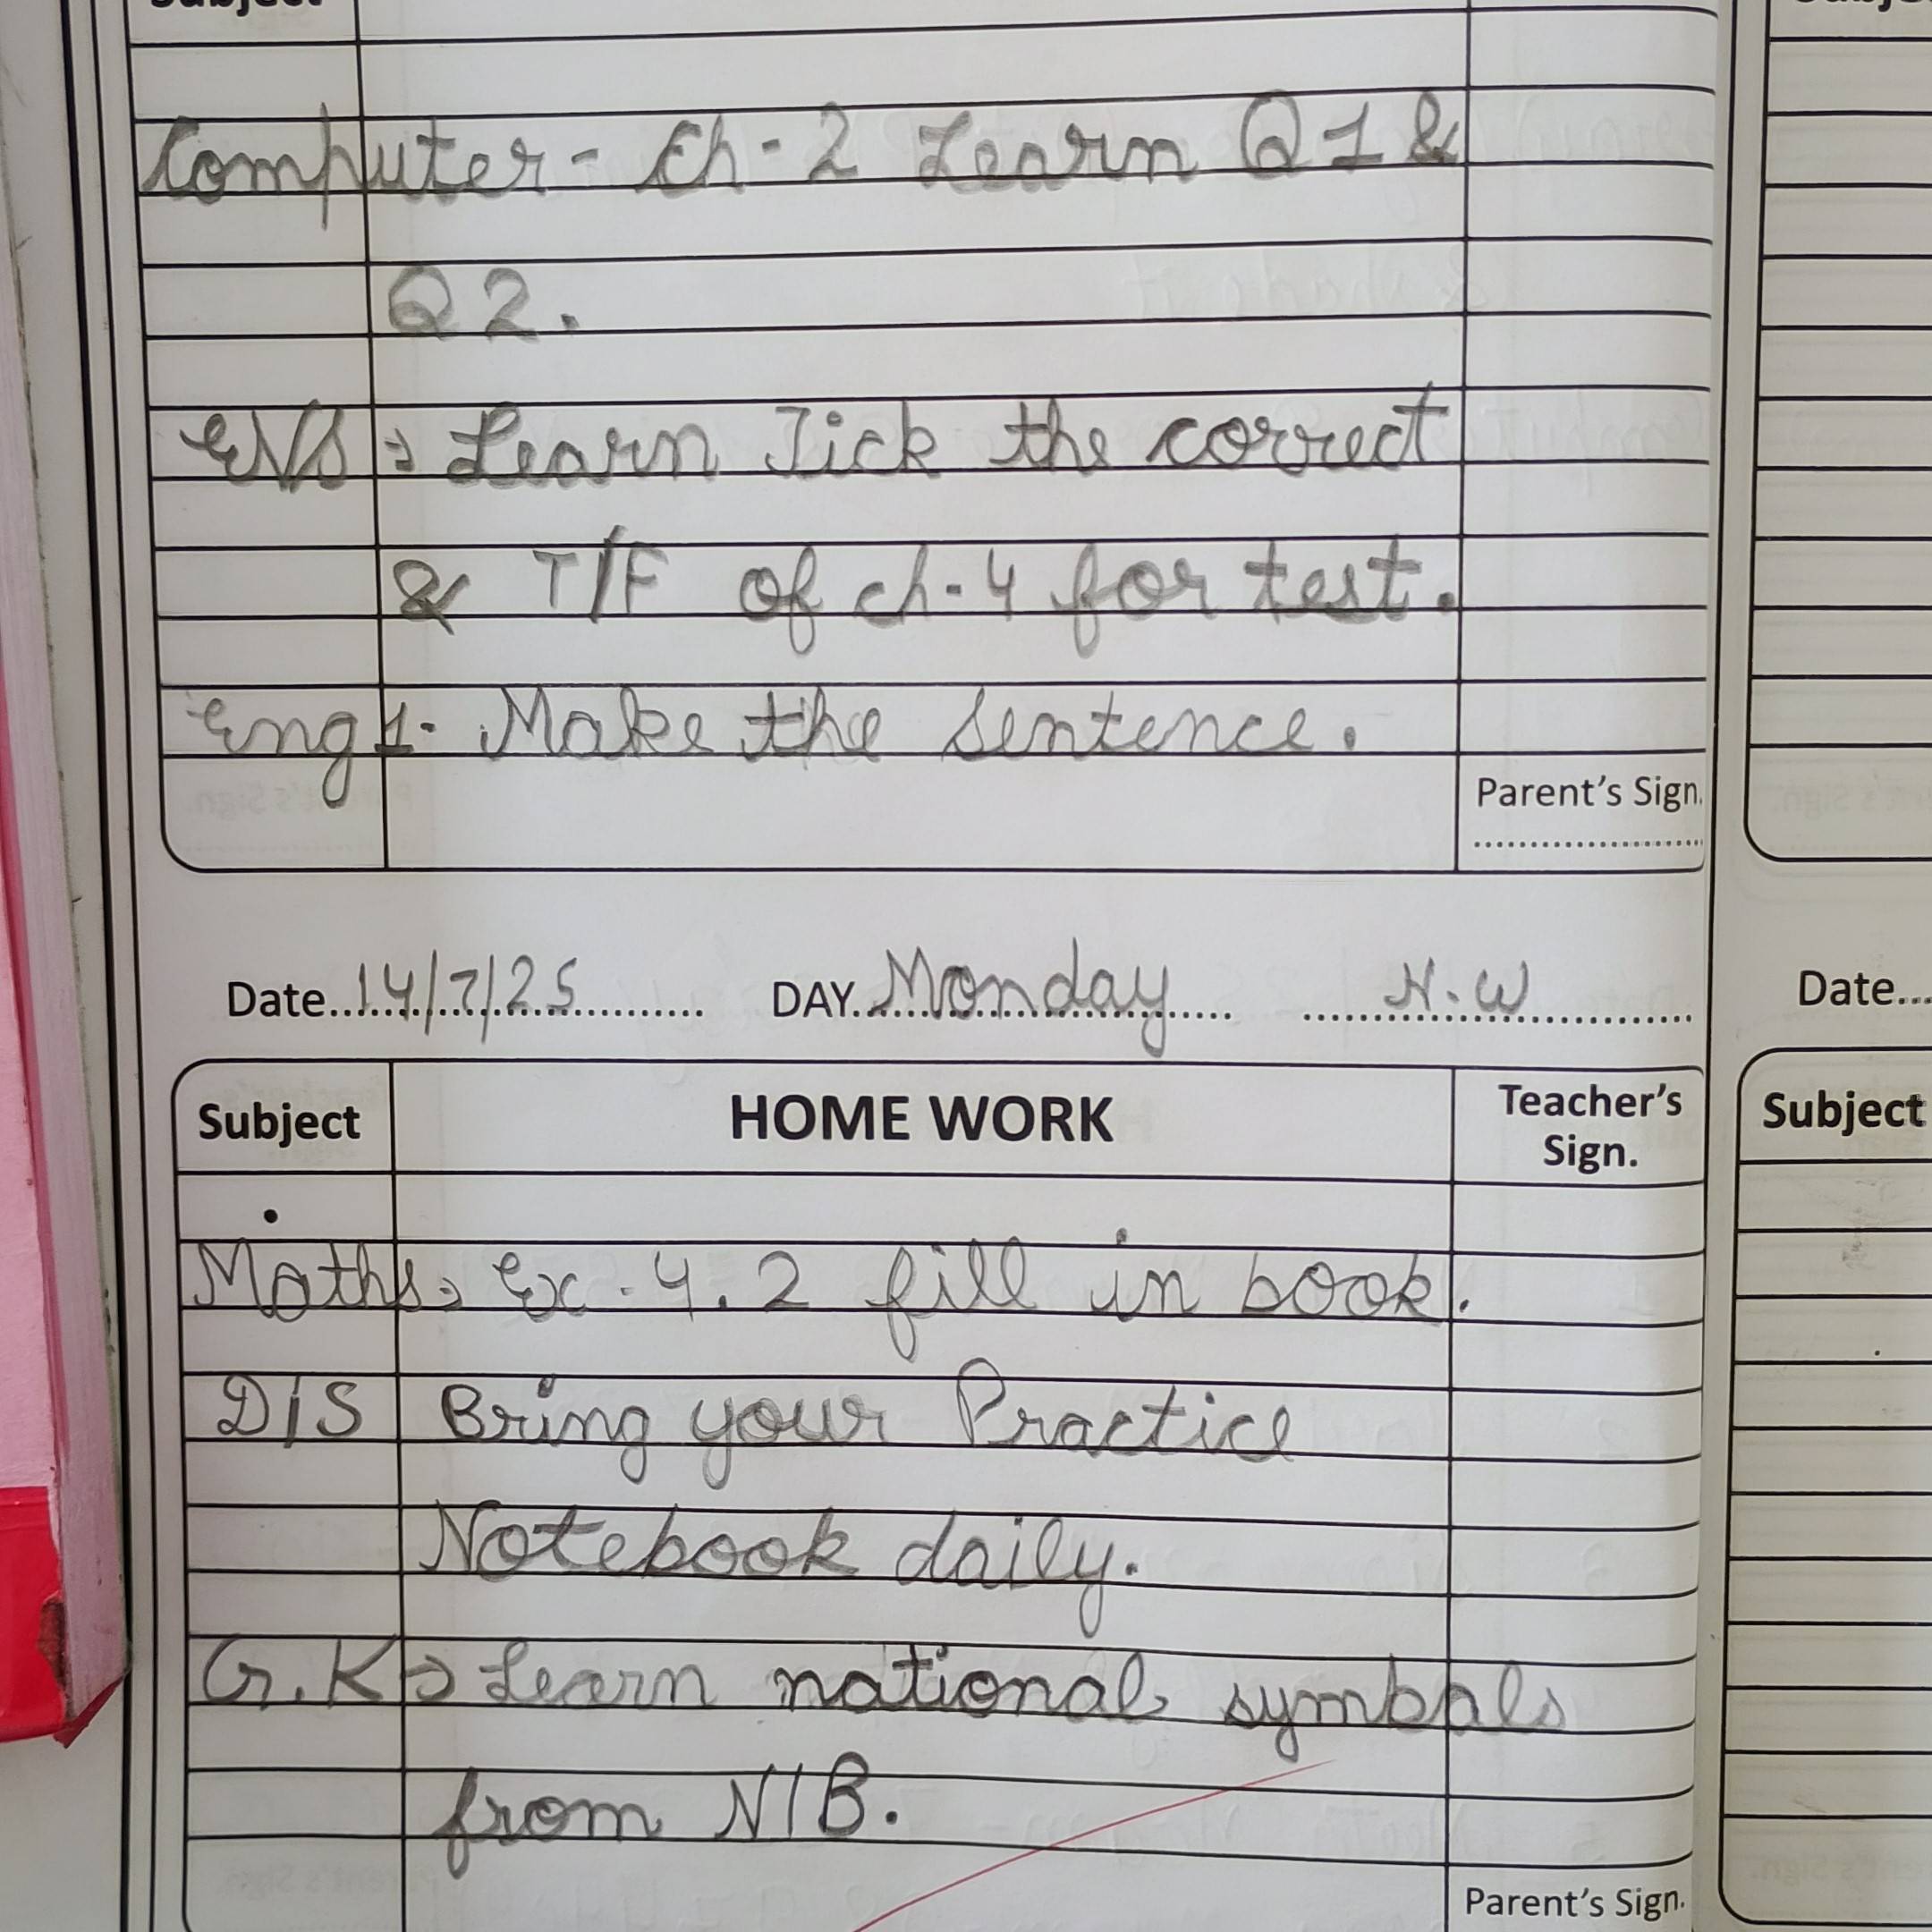 Subject
Computer - Ch - 2 Learn Q1 &
Q2.
EVS → Learn Tick the correct
& T/F of ch-4 for test.
Eng 1. Make the sentence.
Parent's Sign.
Date 14/7/25 DAY Monday H.W
Subject HOME WORK Teacher's Sign.
Maths → Ex - 4.2 fill in book.
D/S Bring your Practice
Notebook daily.
G.K → Learn national symbols
from N/B.
Parent's Sign.
Date
Subject